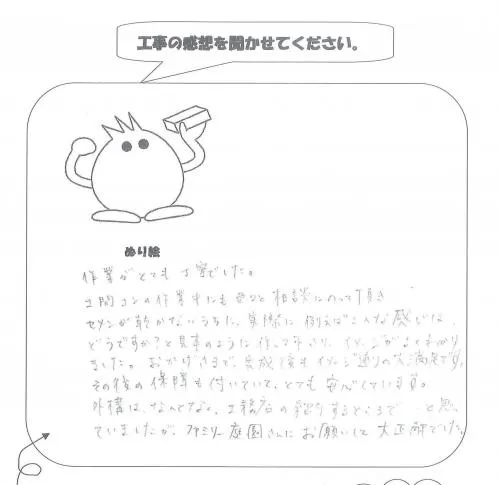 工事の感想を聞かせてください。
ぬり絵
作業がとても丁寧でした。
土間コンの作業中にも 色々と 相談にのって頂き
セメンが乾かないうちに、実際に 例えばこんな感じは、
どうですか？と見本のように 作って下さり、イメージが よくわかり
ました。おかげさまで、完成後も イメージ通りの 大満足です。
その後の 保障も 付いていて、とても 安心しています。
外構は、なんとなく、工務店の するところで と思っ
ていましたが、ファミリー庭園さんに お願いして 大正解でした。